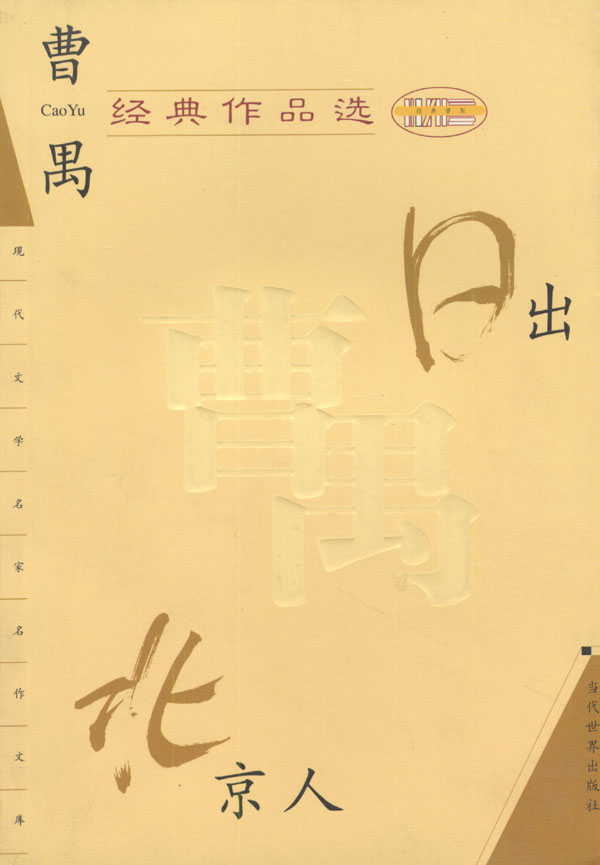 曹禺
CaoYu
经典作品选
经典书架
日出
曹禺
北京人
现代文学名家名作文库
当代世界出版社